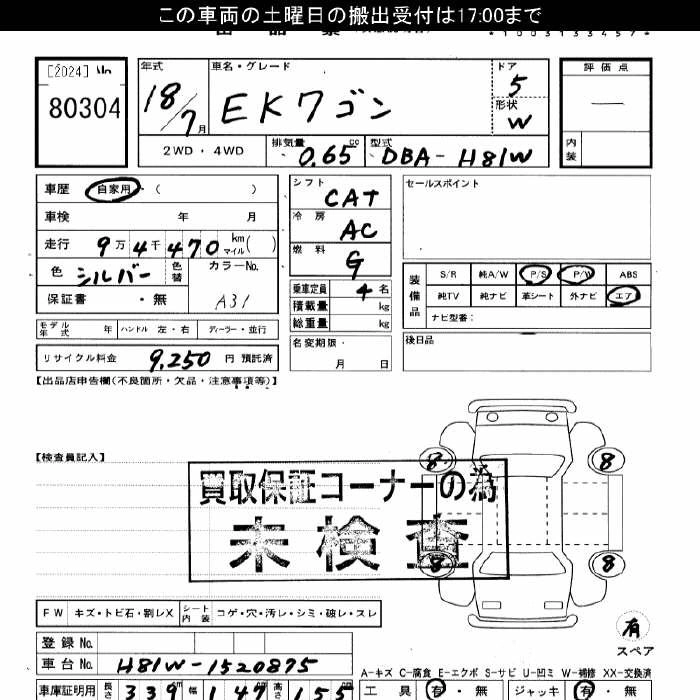 この車両の土曜日の搬出受付は17:00まで
[2024] No
80304
年式 車名・グレード ドア 評価点
18/7月 EKワゴン 5
形状 W
2WD・4WD 排気量 0.65 cc 型式 DBA-H81W 内装
車歴 自家用 ( )
車検 年 月
走行 9万4千470 km マイル ( )
色 シルバー 色替 カラーNo.
保証書 ・無 A31
モデル年式 年 ハンドル 左・右 ディーラー・並行
リサイクル料金 9,250 円 預託済
シフト CAT
冷房 AC
燃料 G
乗車定員 4 名
積載量 kg
総重量 kg
名変期限・
月 日
セールスポイント
装備品 S/R 純A/W P/S P/W ABS
純TV 純ナビ 革シート 外ナビ エア
ナビ型番:
後日品
【出品店申告欄(不良箇所・欠品・注意事項等)】
【検査員記入】
買取保証コーナーの為
未検査
8 8
8 8
有
スペア
FW キズ・トビ石・割レX シート内装 コゲ・穴・汚レ・シミ・破レ・スレ
登録No.
車台No. H81W-1520875
車庫証明用 長さ 339 幅 147 高さ 155
A-キズ C-腐食 E-エクボ S-サビ U-凹ミ W-補修 XX-交換済
工具 有・無 ジャッキ 有・無